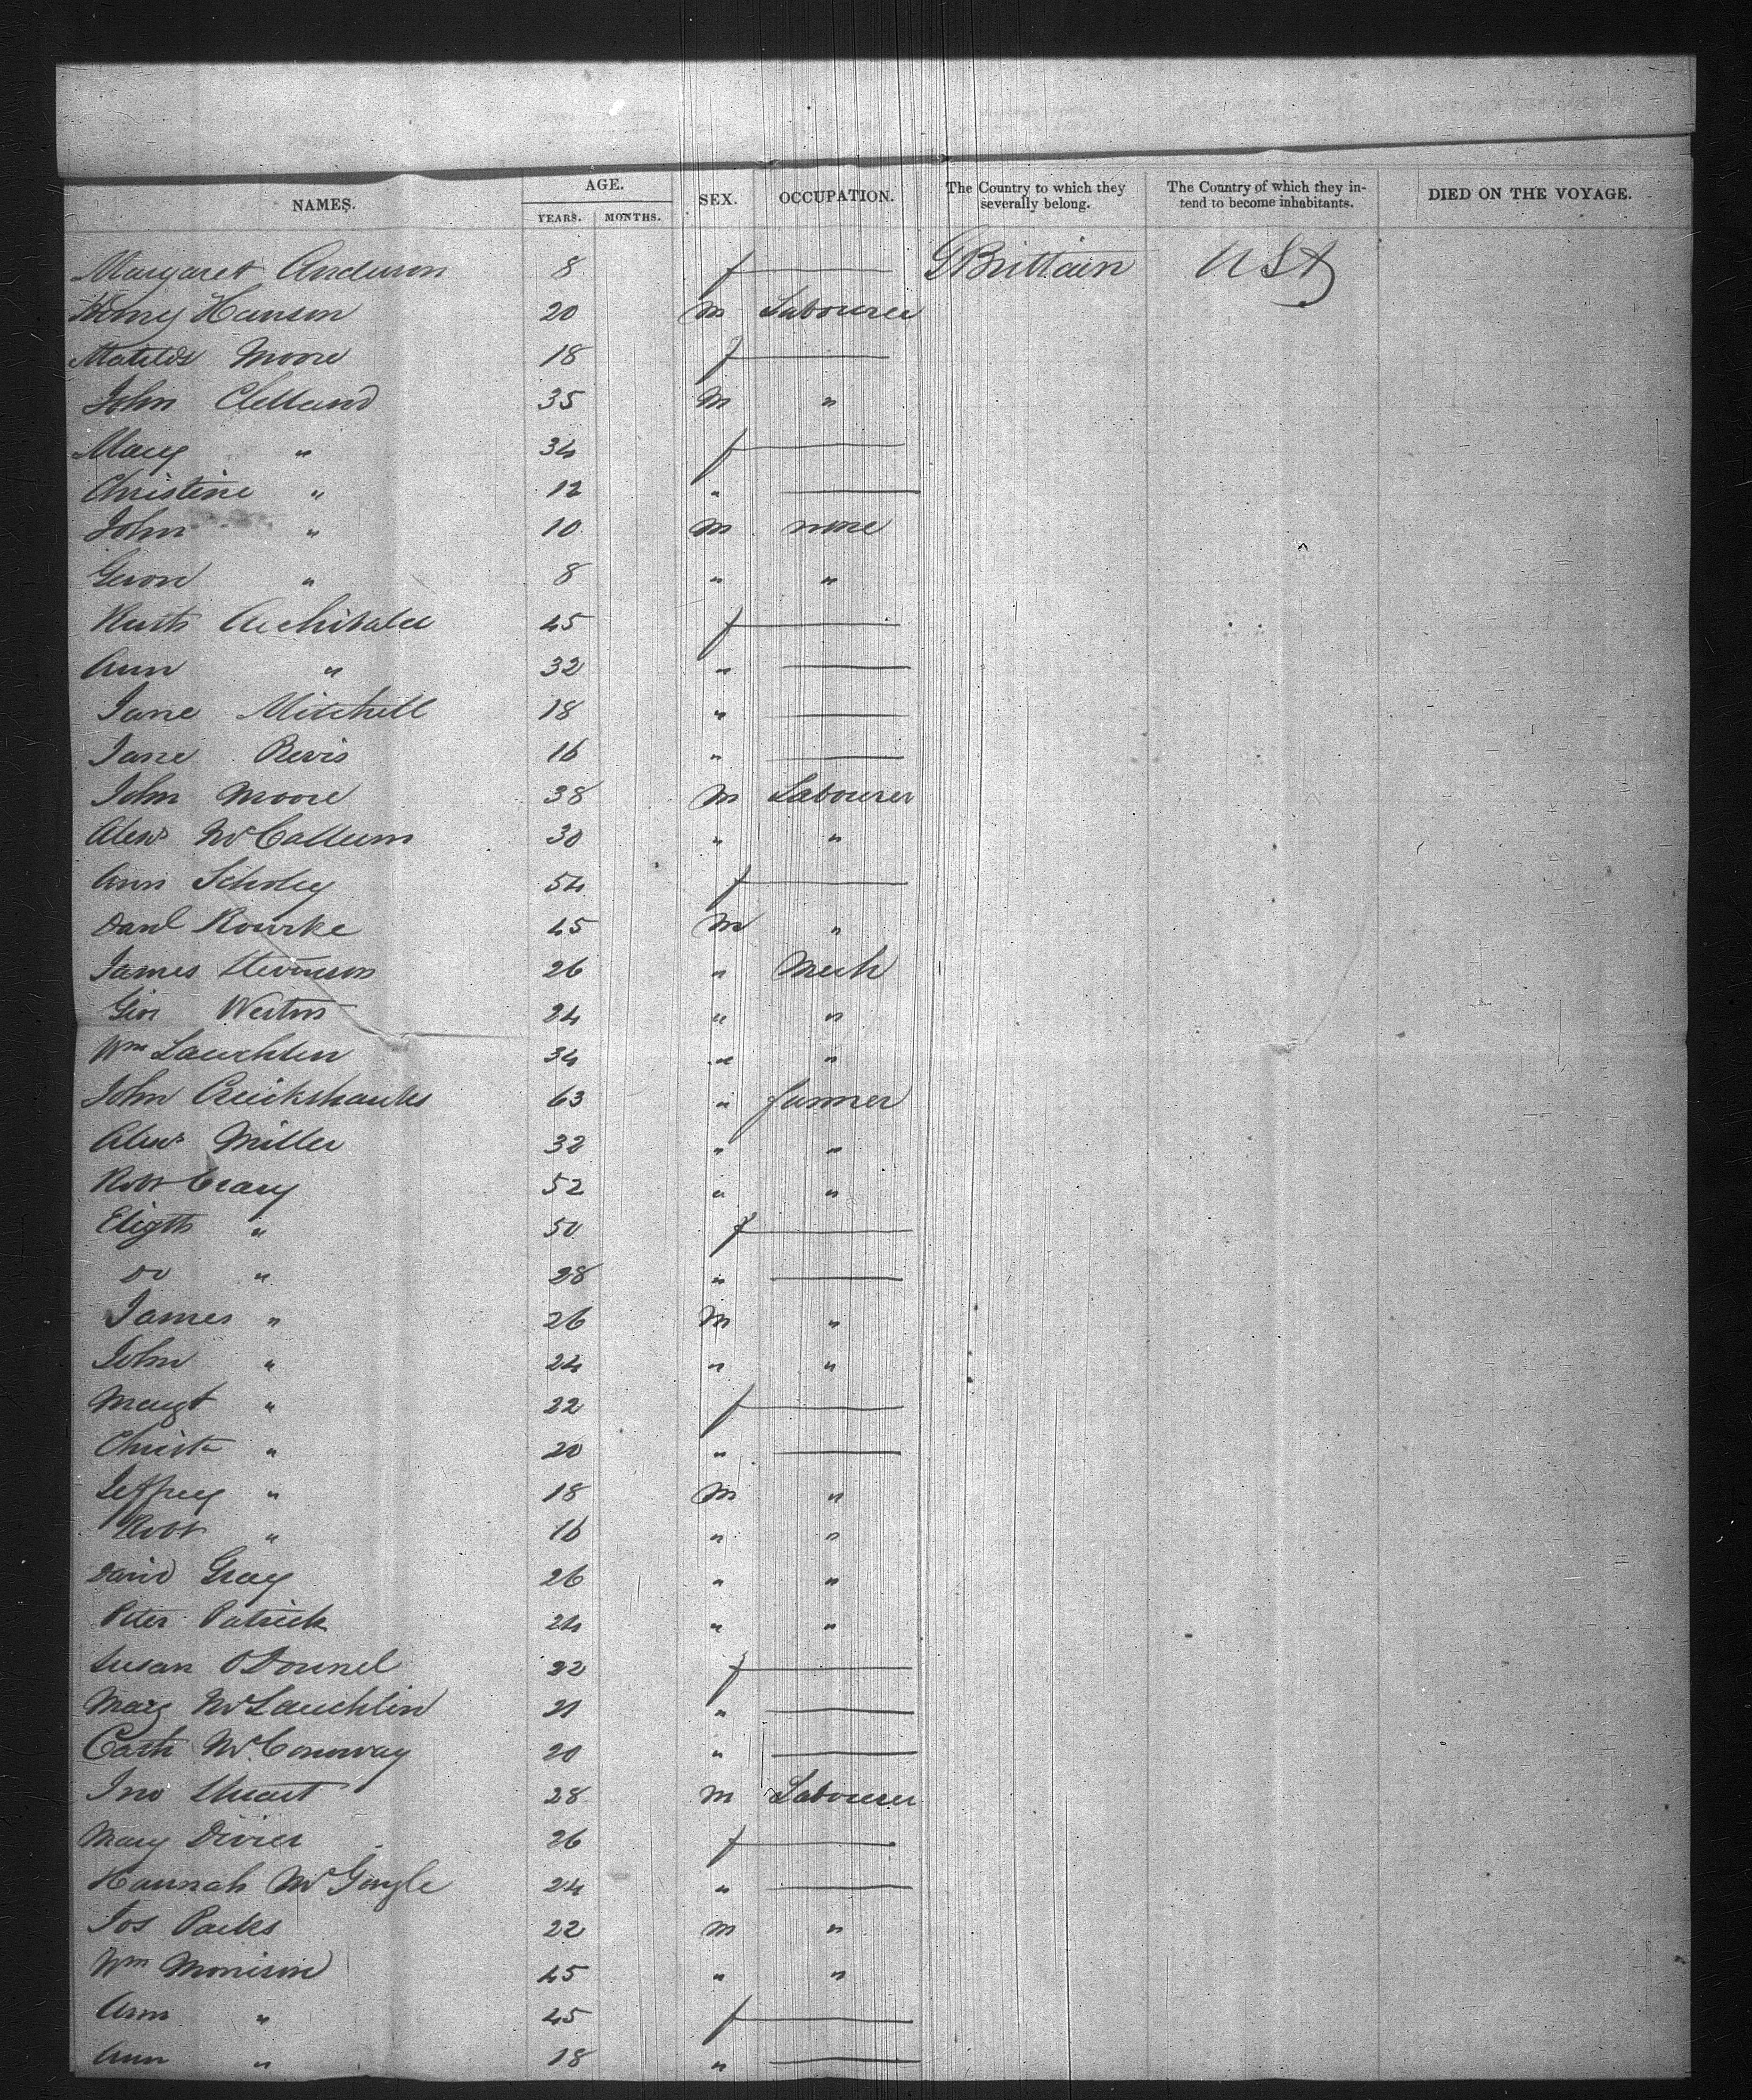 NAMES. AGE. SEX. OCCUPATION. The Country to which they severally belong. The Country of which they intend to become inhabitants. DIED ON THE VOYAGE.
YEARS. MONTHS.
Margaret Anderson 8 f — G Brittain USA
Henry Hanson 20 m Labourer
Matilda Moore 18 f —
John Clelland 35 m "
Mary " 34 f —
Christine " 12 " —
John " 10 m none
" 8 " "
Ruth Archibald 45 f —
Ann " 32 " —
Jane Mitchell 18 " —
Jane Revis 16 " —
John Moore 38 m Labourer
Alexr McCallum 30 " "
Ann Scholey 54 f —
Danl Rourke 45 m "
James Stevenson 26 " Mech
Geo 24 " "
Wm Lauchlin 34 " "
John Cruikshanks 63 " farmer
Alexr Miller 32 " "
Robt Crary 52 " "
Elizth " 50 f —
Do " 28 " —
James " 26 m "
John " 24 " "
Margt " 22 f —
Christn " 20 " —
Jeffrey " 18 m "
Robt " 16 " "
David Gray 26 " "
Peter Patrick 24 " "
Susan O'Donnel 22 f —
Marg McLauchlin 21 " —
Cath McConoway 20 " —
Jno Stuart 28 m Labourer
Mary Diver 26 f —
Hannah McGongle 24 " —
Jos Parks 22 m "
Wm Morrison 45 " "
Ann " 45 f —
Ann " 18 " —